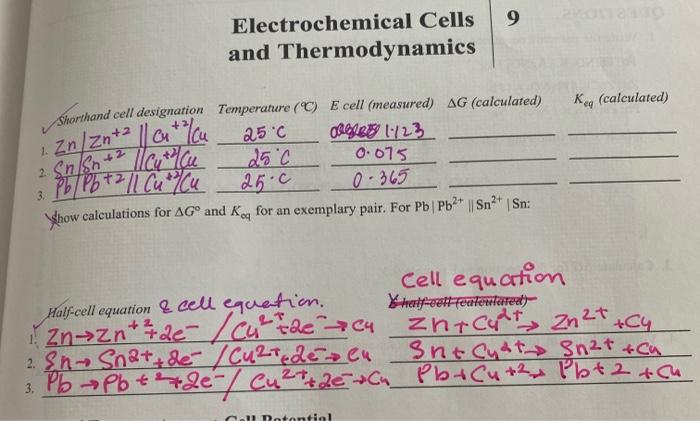 Electrochemical Cells 9
and Thermodynamics
Shorthand cell designation Temperature (°C) E cell (measured) ΔG (calculated) Keq (calculated)
1. Zn/Zn+2 || Cu+2/Cu 25°C 1.123
2. Sn/Sn+2 || Cu+2/Cu 25°C 0.075
3. Pb/Pb+2 || Cu+2/Cu 25°C 0.365
Show calculations for ΔG° and Keq for an exemplary pair. For Pb | Pb2+ || Sn2+ | Sn:
cell equation
Half-cell equation & cell equation. half-cell (calculated)
1. Zn→Zn+2+2e- / Cu2++2e-→Cu Zn+Cu2+→ Zn2+ +Cu
2. Sn→ Sn2++2e- / Cu2++2e-→Cu Sn+ Cu2+→ Sn2+ +Cu
3. Pb→Pb+2+2e- / Cu2++2e-→Cu Pb+Cu+2→ Pb+2 +Cu
Cell Potential